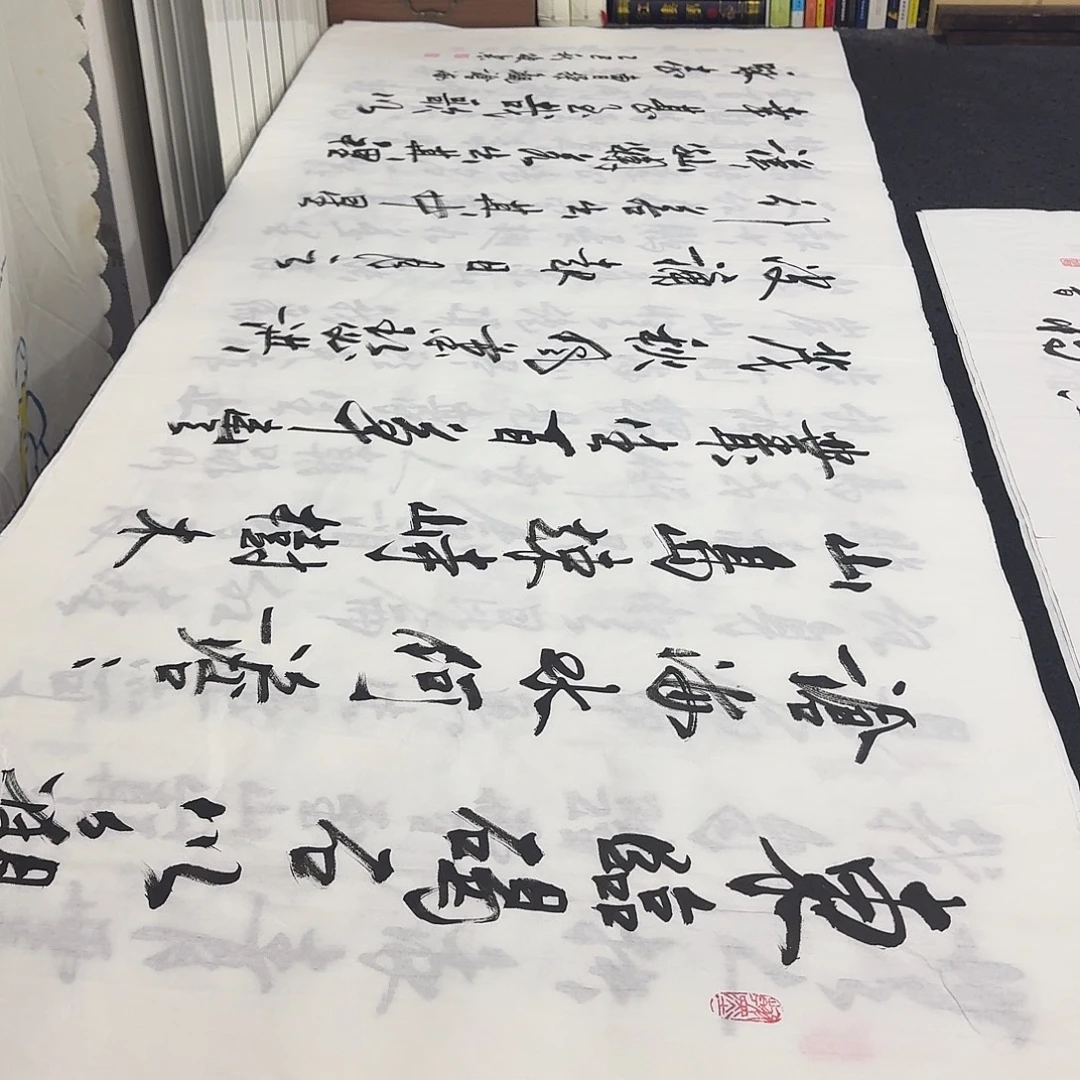 東臨碣石以觀
滄海水何澹澹
山島竦峙樹木
叢生百草豐
茂秋風蕭瑟洪
波湧起日月之
行若出其中星
漢燦爛若出其裡
幸甚至哉歌以
詠志 曹操觀滄海
乙巳